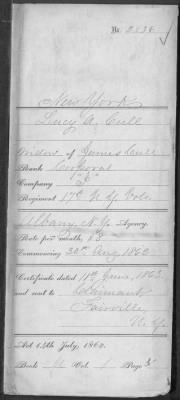 No. 2836
New York
Lucy A. Cull
Widow of James Cull
Rank Corporal
Company "E"
Regiment 17th N.Y. Vols.
Albany, N.Y. Agency.
Rate per month, $8
Commencing 30th Aug, 1862
Certificate dated 11th June, 1863
and sent to Claimant
Fairville,
N.Y.
Act 14th July, 1862.
Book Vol. 1 Page